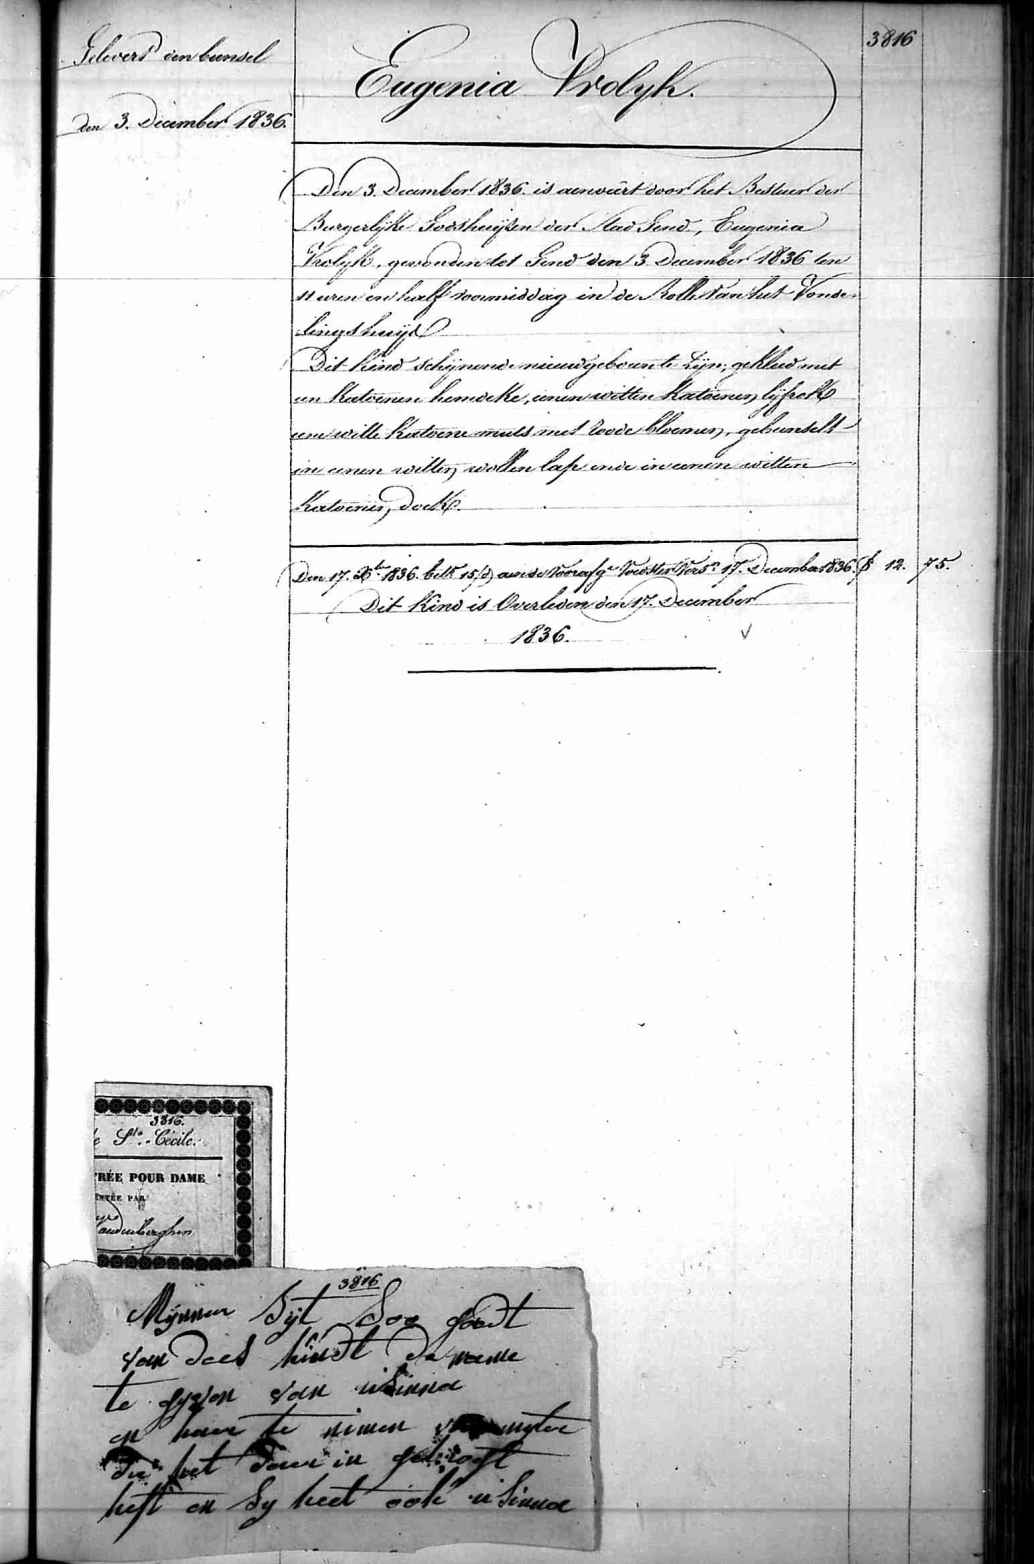 3816
Gelevert een bunsel
den 3. December 1836.
Eugenia Vrolyk.
Den 3. December 1836. is aenveirt door het Bestuer der
Burgerlyke Godshuijsen der Stad Gend, Eugenia
Vrolyk, gevonden tot Gend den 3. December 1836 ten
11 uren en half voormiddag in de Rolle van het Vonde-
lingshuijs
Dit kind schijnende nieuwgeboren te zijn, gekleed met
een katoenen hemdeke, eenen witten katoenen lijfrok
eene witte katoene muts met roode bloemen, gebunselt
in eenen witten wollen lap ende in eenen witten
katoenen doek.
Den 17. Xbr 1836. bett 15 aen de Voedster Vers. 17. December 1836. 12. 75.
Dit Kind is Overleden den 17. December
1836.
3816.
e Ste. Cécile.
RÉE POUR DAME
ENTÉE PAR
Vandenberghen
3816
Mynheer Syt Soo goedt
van dees kindt de name
te gyven van uSinna
en haer te nimen meter
die het daer in gebrogt
heft en Sy heet ook uSinna